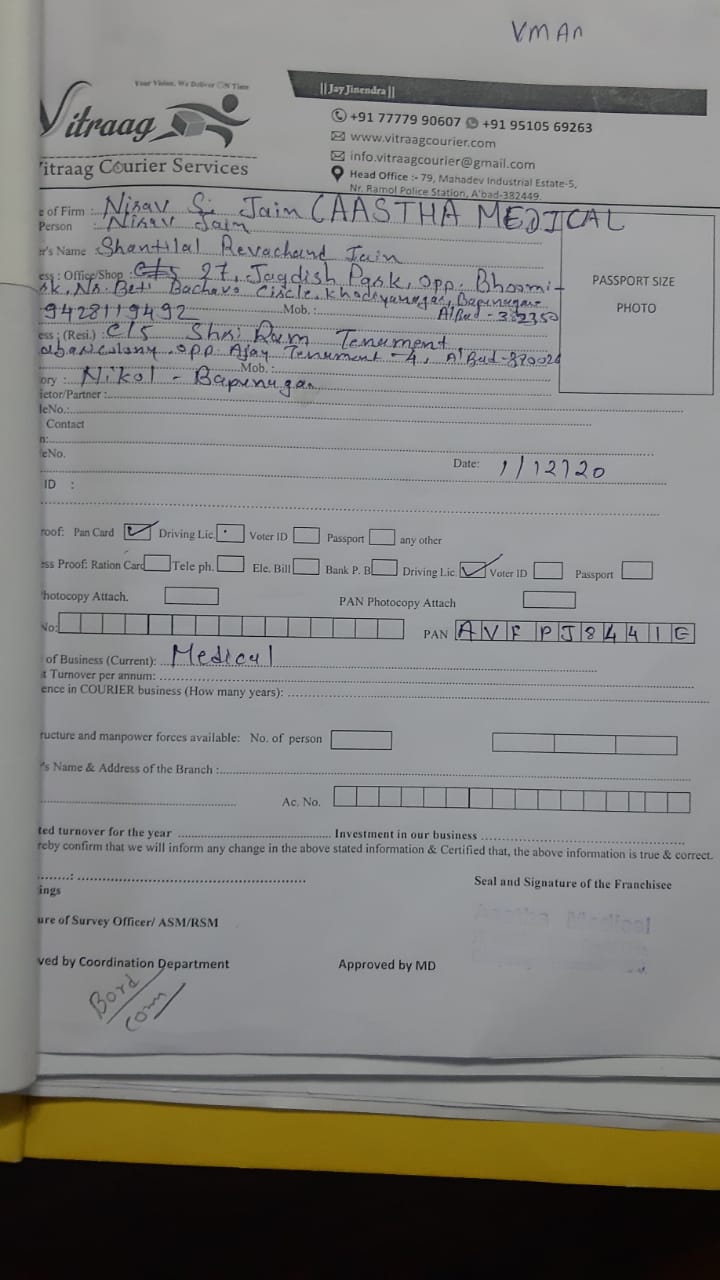 VMAn
Your Vision, We Deliver ON Time
|| Jay Jinendra ||
Vitraag
Vitraag Courier Services
+91 77779 90607 +91 95105 69263
www.vitraagcourier.com
info.vitraagcourier@gmail.com
Head Office :- 79, Mahadev Industrial Estate-5,
Nr. Ramol Police Station, A'bad-382449.
e of Firm : Nirav S. Jain (AASTHA MEDICAL
Person : Nirav Jain
er's Name : Shantilal Revachand Jain
ess : Office/Shop : 27, Jagdish Park, Opp. Bhoomi-
Nr. Beti Bachavo Circle, Khodiyarnagar, Bapunagar
9428119492 Mob. : A'Bad - 382350
ess : (Resi.) : C/5 Shri Ram Tenament,
colony, opp. Ajay Tenament - 4, A'Bad-
Mob. :
ory : Nikol - Bapunagar
ietor/Partner :
leNo.:
Contact
n:
leNo.
Date: 1/12/20
ID :
PASSPORT SIZE
PHOTO
roof: Pan Card Driving Lic. Voter ID Passport any other
ess Proof: Ration Card Tele ph. Ele. Bill Bank P. B Driving Lic. Voter ID Passport
hotocopy Attach. PAN Photocopy Attach
No: PAN AVFPJ8441G
of Business (Current): Medical
t Turnover per annum:
ence in COURIER business (How many years):
ructure and manpower forces available: No. of person
's Name & Address of the Branch :
Ac. No.
ted turnover for the year Investment in our business
reby confirm that we will inform any change in the above stated information & Certified that, the above information is true & correct.
Seal and Signature of the Franchisee
ings
Aastha Medical
ure of Survey Officer/ ASM/RSM
ved by Coordination Department Approved by MD
Bord
Com